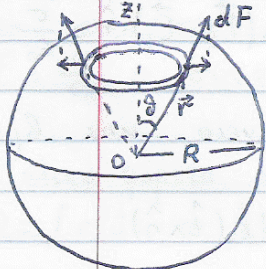 z
dF
ϑ
r⃗
O
R